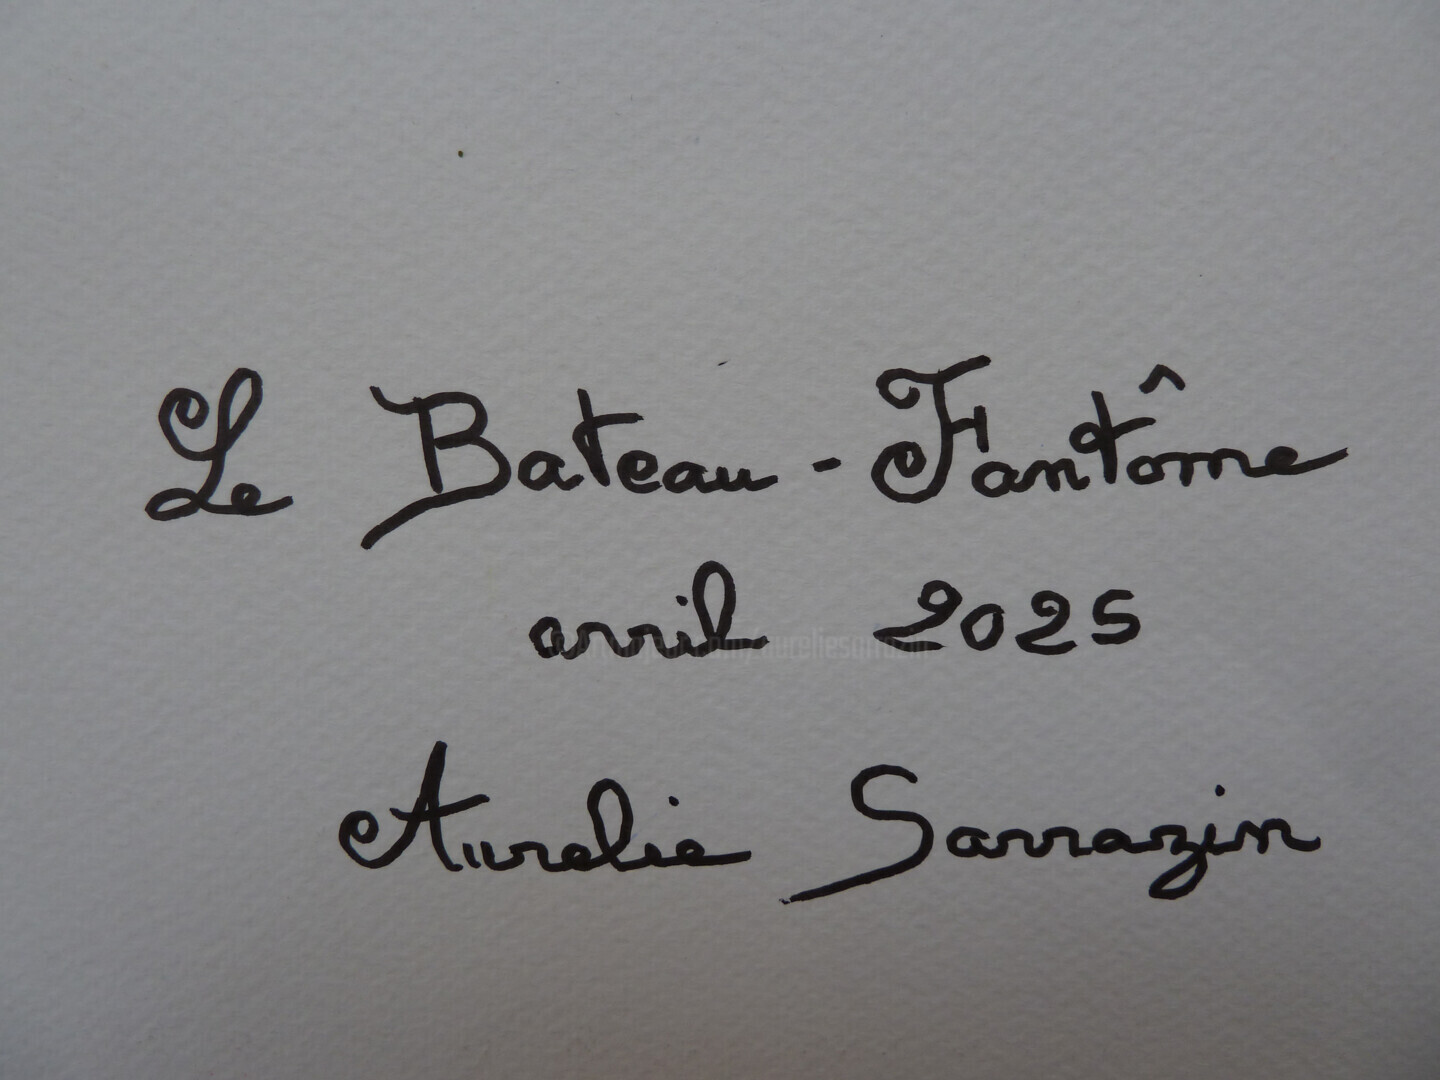 Le Bateau-Fantôme
avril 2025
© Artmajeur.com/aureliesarrazin
Aurelie Sarrazin